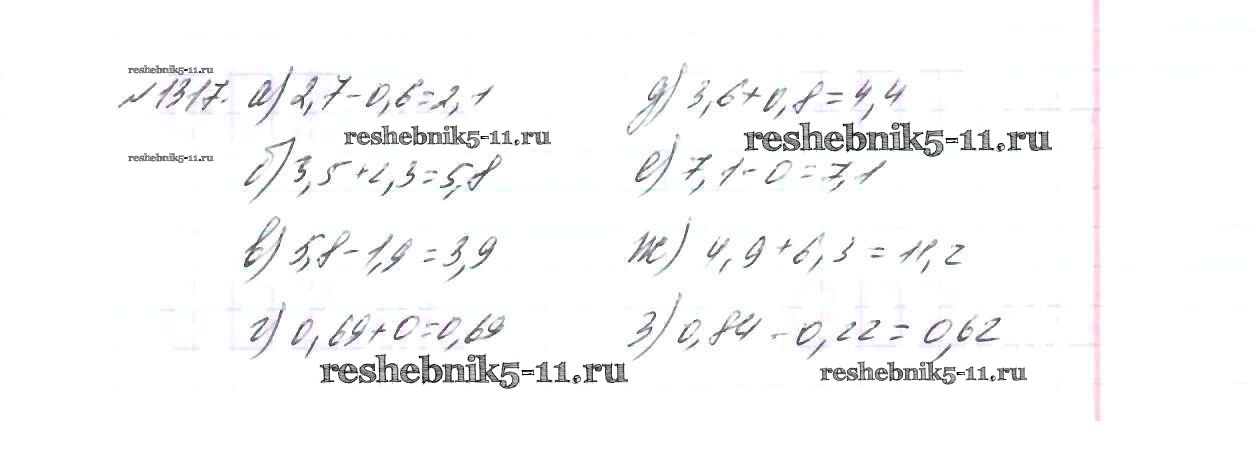 reshebnik5-11.ru
№1317. а) 2,7-0,6=2,1
д) 3,6+0,8=4,4
reshebnik5-11.ru
reshebnik5-11.ru
reshebnik5-11.ru
б) 3,5+2,3=5,8
е) 7,1-0=7,1
в) 5,8-1,9=3,9
ж) 4,9+6,3=11,2
г) 0,69+0=0,69
з) 0,84-0,22=0,62
reshebnik5-11.ru
reshebnik5-11.ru